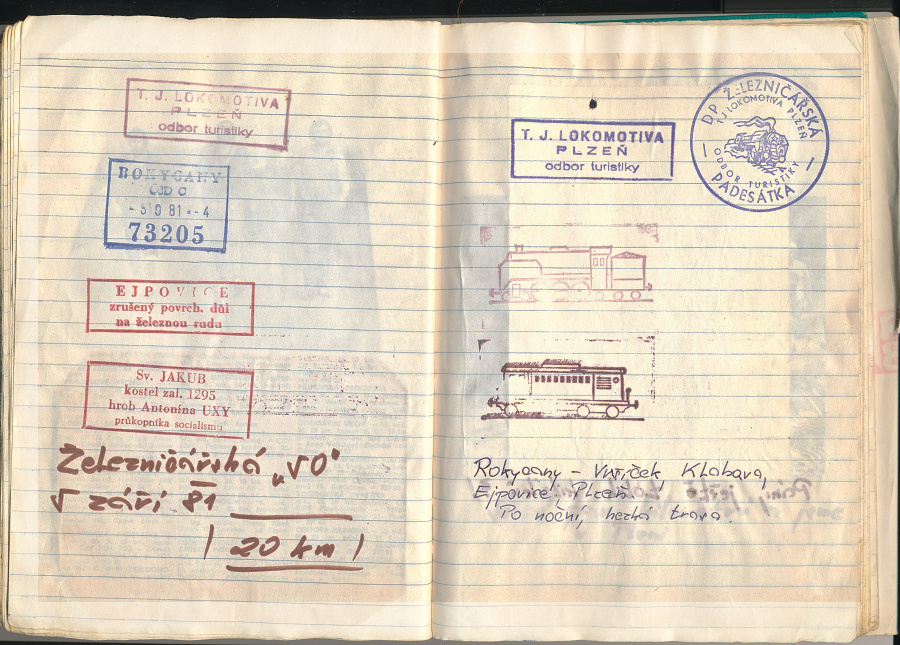 T. J. LOKOMOTIVA
PLZEŇ
odbor turistiky
ROKYCANY
ČJD C
- 5 9 81 -- 4
73205
EJPOVICE
zrušený povrch. důl
na železnou rudu
Sv. JAKUB
kostel zal. 1295
hrob Antonína UXY
průkopníka socialismu
Železničářská „50"
5 září 81
20 km
T. J. LOKOMOTIVA
PLZEŇ
odbor turistiky
D.P. ŽELEZNIČÁŘSKÁ
TJ LOKOMOTIVA PLZEŇ
ODBOR TURISTIKY
PADESÁTKA
Rokycany – Vršíček, Klabava,
Ejpovice, Plzeň.
Po noční, hezká trava.